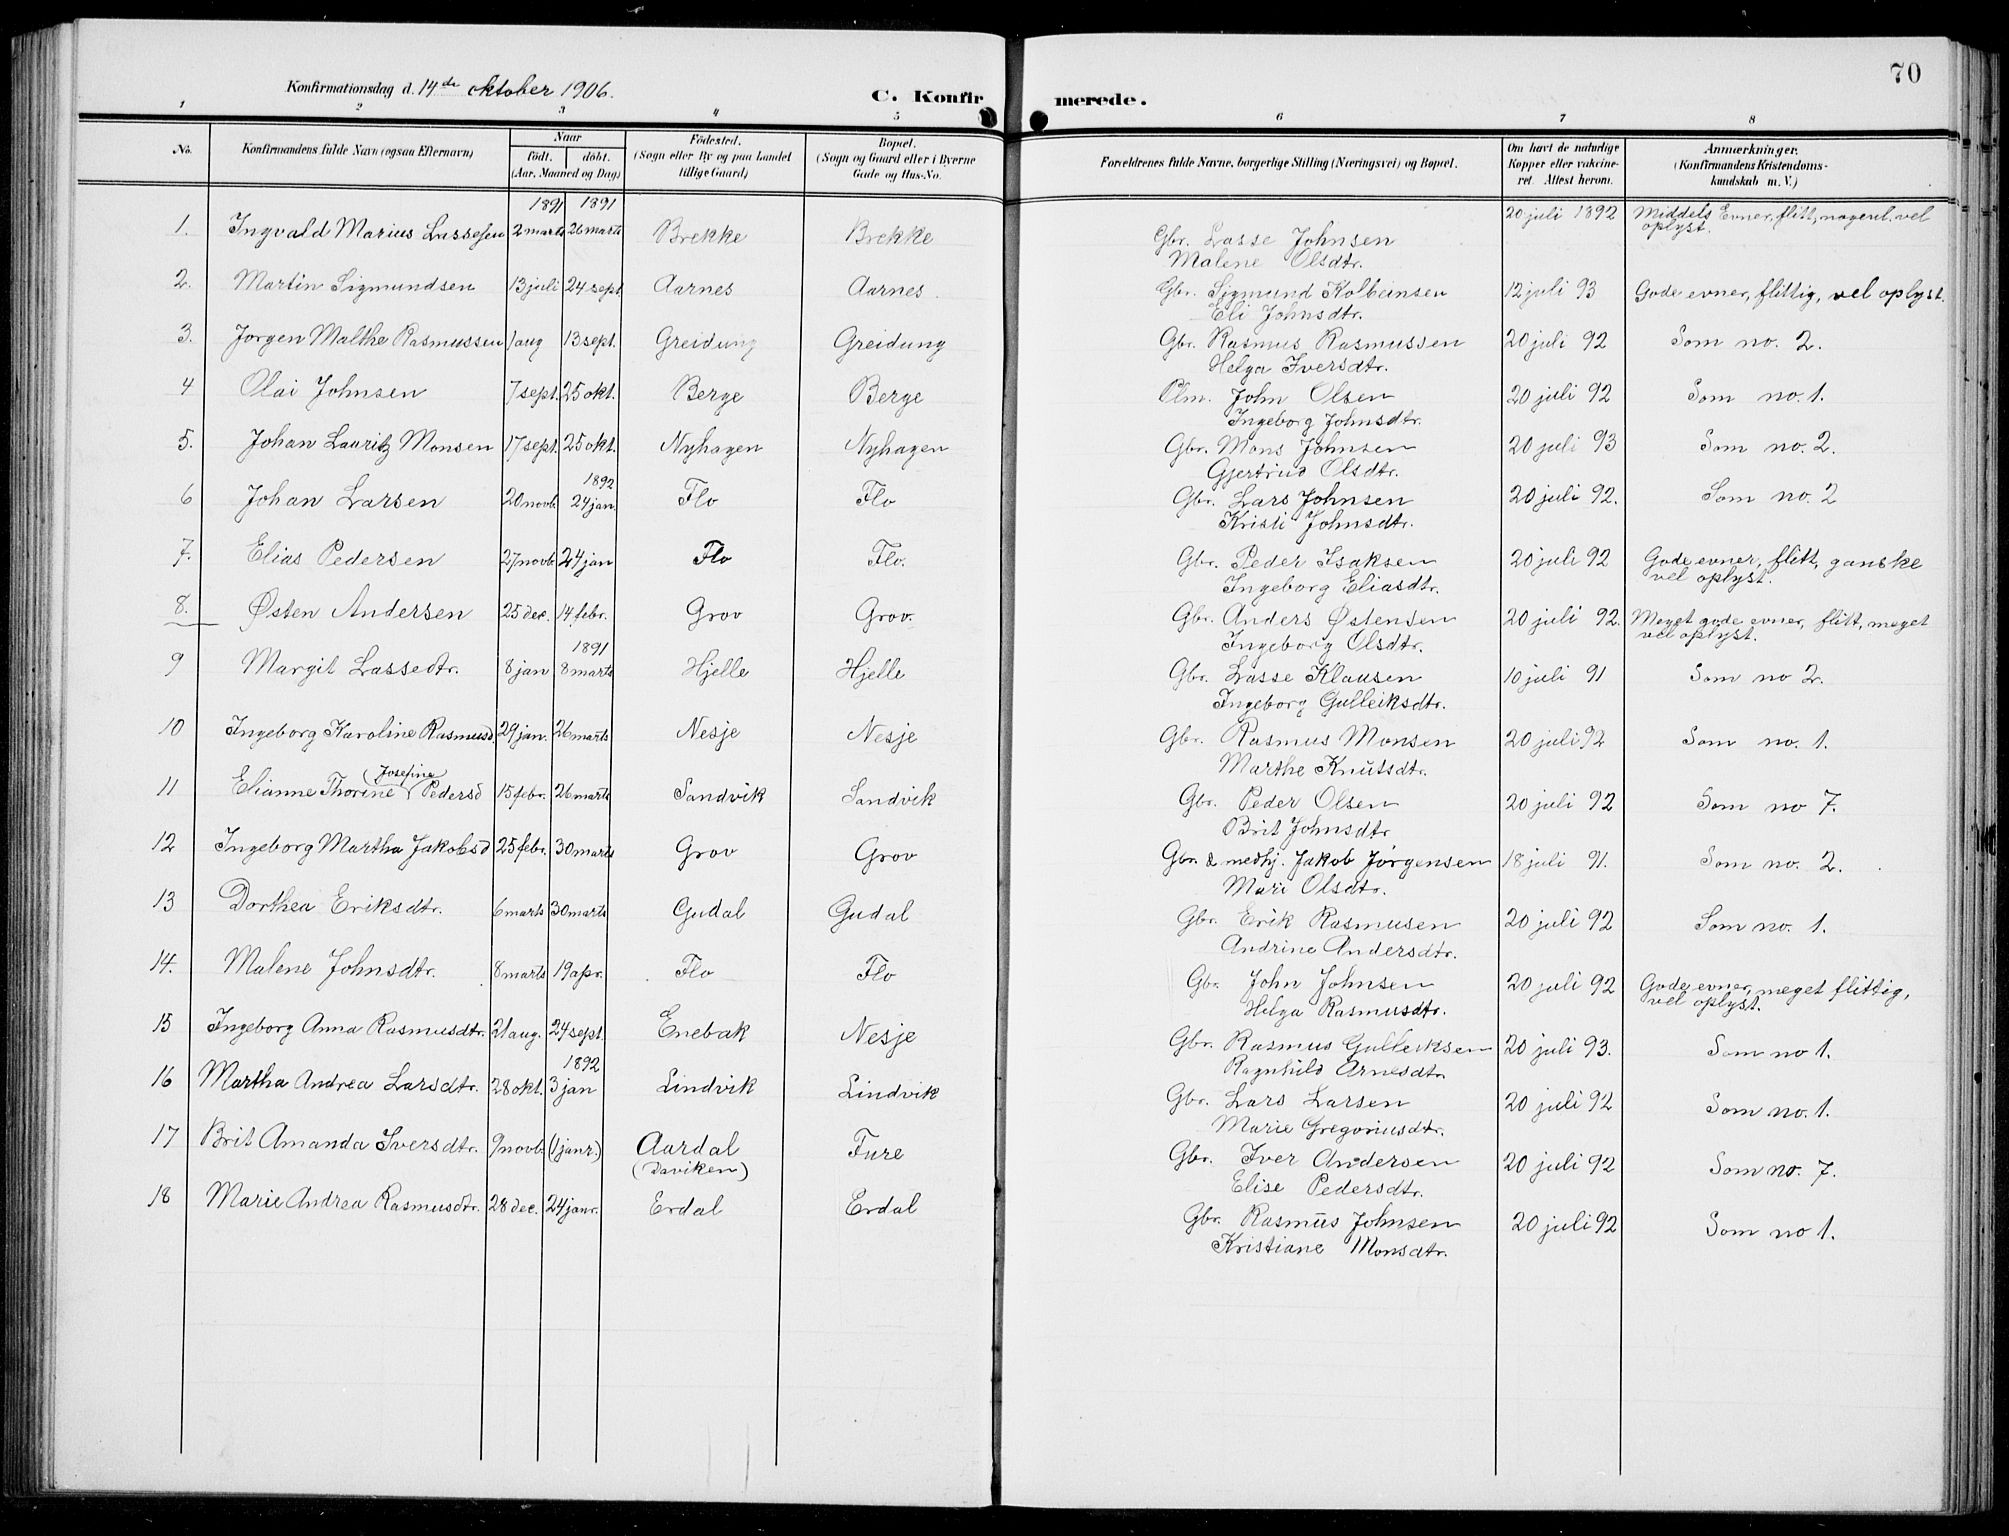 70
Konfirmationsdag d. 14de oktober 1906.
C. Konfirmerede.
1 2 3 4 5 6 7 8
No. | Konfirmandens fulde Navn (ogsaa Efternavn) | Naar födt. döbt. (Aar, Maaned og Dag) | Födested. (Sogn eller By og paa Landet tillige Gaard) | Bopæl. (Sogn og Gaard eller i Byerne Gade og Hus-No. | Forældrenes fulde Navne, borgerlige Stilling (Næringsvei) og Bopæl. | Om havt de naturlige Kopper eller vakcineret. Attest herom. | Anmærkninger. (Konfirmandens Kristendomskundskab m. V.)
1891 1891
1. Ingvald Marius Lassesen 2 marts 26 marts Brekke Brekke Gbr. Lasse Johnsen 20 juli 1892 Middels Evner, flitt, nogenl. vel oplyst.
Malene Olsdtr.
2. Martin Sigmundsen 13 juli 24 sept. Aarnes Aarnes Gbr. Sigmund Kolbeinsen 12 juli 93 Gode evner, flittig, vel oplyst.
Eli Johnsdtr.
3. Jørgen Malthe Rasmussen 1 aug 13 sept. Greidung Greidung Gbr. Rasmus Rasmussen 20 juli 92 Som no. 2.
Helga Iversdtr.
4 Olai Johnsen 7 sept. 25 okt. Berge Berge Plm. John Olsen 20 juli 92 Som no. 1.
Ingeborg Johnsdtr.
5. Johan Lauritz Monsen 17 sept. 25 okt. Nyhagen Nyhagen Gbr. Mons Johnsen 20 juli 93 Som no. 2.
Gjertrud Olsdtr.
1892
6 Johan Larsen 20 novb. 24 jan. Flo Flo Gbr. Lars Johnsen 20 juli 92. Som no. 2
Kristi Johnsdtr.
7. Elias Pedersen 27 novb. 24 jan Flo Flo. Gbr. Peder Isaksen 20 juli 92 Gode evner, flitt, ganske vel oplyst.
Ingeborg Eliasdtr.
8. Østen Andersen 25 dec. 14 febr. Grov Grov. Gbr. Anders Østensen 20 juli 92. Meget gode evner, flitt, meget vel oplyst.
Ingeborg Olsdtr.
1891
9 Margit Lassedtr. 8 jan 8 marts Hjelle Hjelle Gbr. Lasse Klausen 10 juli 91 Som no 2.
Ingeborg Gulleiksdtr.
10 Ingeborg Karoline Rasmusd. 29 jan. 26 marts Nesje Nesje Gbr. Rasmus Monsen 20 juli 92 Som no. 1.
Marthe Knutsdtr.
11 Elianne Thorine (Josefine) Pedersd 15 febr. 26 marts Sandvik Sandvik Gbr. Peder Olsen 20 juli 92 Som no 7.
Brit Johnsdtr
12 Ingeborg Martha Jakobsd 25 febr. 30 marts Grov Grov Gbr. & medhj. Jakob Jørgensen 18 juli 91. Som no. 2.
Mari Olsdtr.
13 Dorthea Eriksdtr. 6 marts 30 marts Gudal Gudal Gbr. Erik Rasmusen 20 juli 92 Som no. 1.
Andrine Andersdtr.
14. Malene Johnsdtr. 8 marts 19 apr. Flo Flo Gbr. John Johnsen 20 juli 92 Gode evner, meget flittig, vel oplyst.
Helga Rasmusdtr.
15 Ingeborg Anna Rasmusdtr. 21 aug. 24 sept. Enebak Nesje Gbr. Rasmus Gulleiksen 20 juli 93. Som no 1.
Ragnhild Arnesdtr.
1892
16 Martha Andrea Larsdtr. 28 okt. 3 jan Lindvik Lindvik Gbr. Lars Larsen 20 juli 92 Som no. 1.
Marie Gregoriusdtr.
17 Brit Amanda Iversdtr. 9 novb. (1 janr.) Aardal (Daviken) Fure Gbr. Iver Andersen 20 juli 92 Som no. 7.
Elise Pedersdtr.
18 Marie Andrea Rasmusdtr. 28 dec. 24 janr. Erdal Erdal Gbr. Rasmus Johnsen 20 juli 92 Som no 1.
Kristiane Monsdtr.